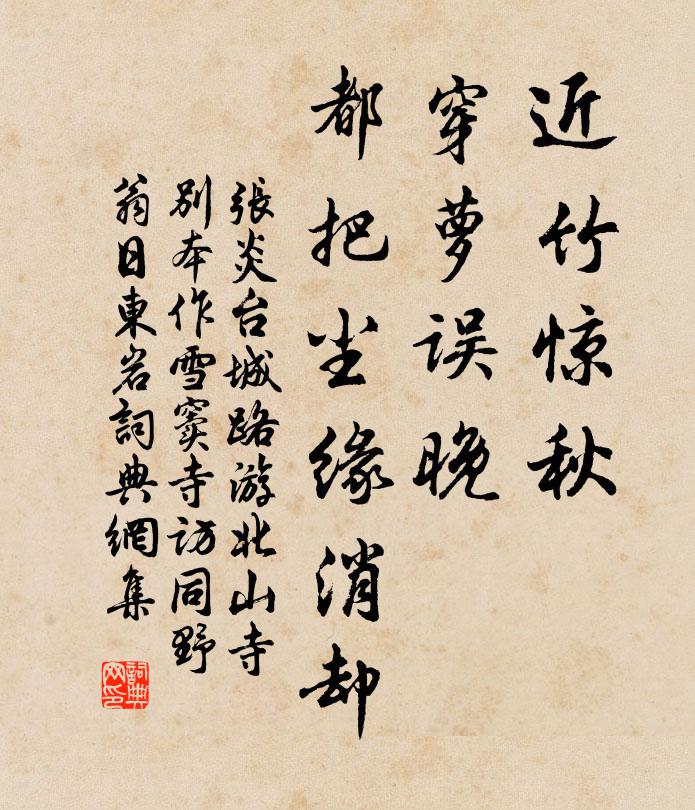 近竹惊秋
穿萝误晚
都把尘缘消却
張炎台城路游北山寺
别本作雪窦寺访同野
翁日東岩詞典網集
詞典网印